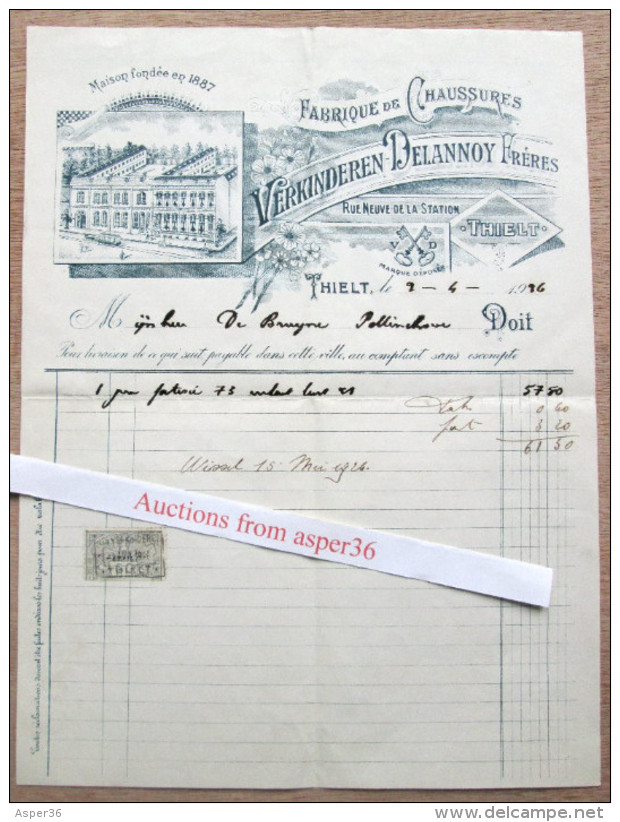 Maison fondée en 1887
FABRIQUE DE CHAUSSURES
VERKINDEREN-DELANNOY FRÈRES
RUE NEUVE DE LA STATION
THIELT
V D
MARQUE DÉPOSÉE
THIELT, le 2-4-1926
M De Bruyne Pollinchove Doit
Pour livraison de ce qui suit payable dans cette ville, au comptant sans escompte
1 75 57 50
0 60
3 20
61 50
Wissel 15 Mei 1926.
Auctions from asper36
THIELT
Asper36
www.delcampe.net